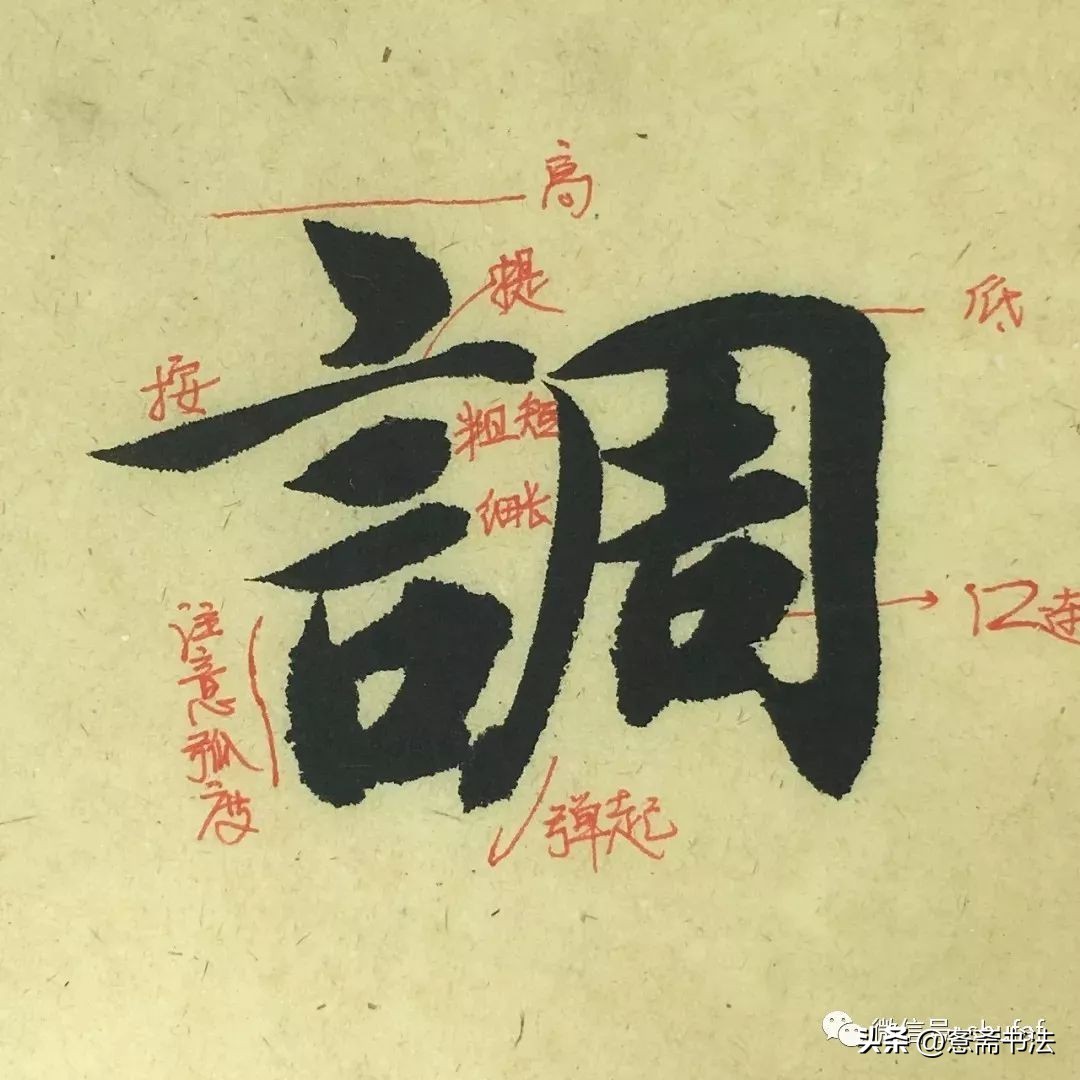 高
提
低
按
調
粗短
细长
口连
注意弧度
弹起
微信号: shufaf
头条 @惫斋书法